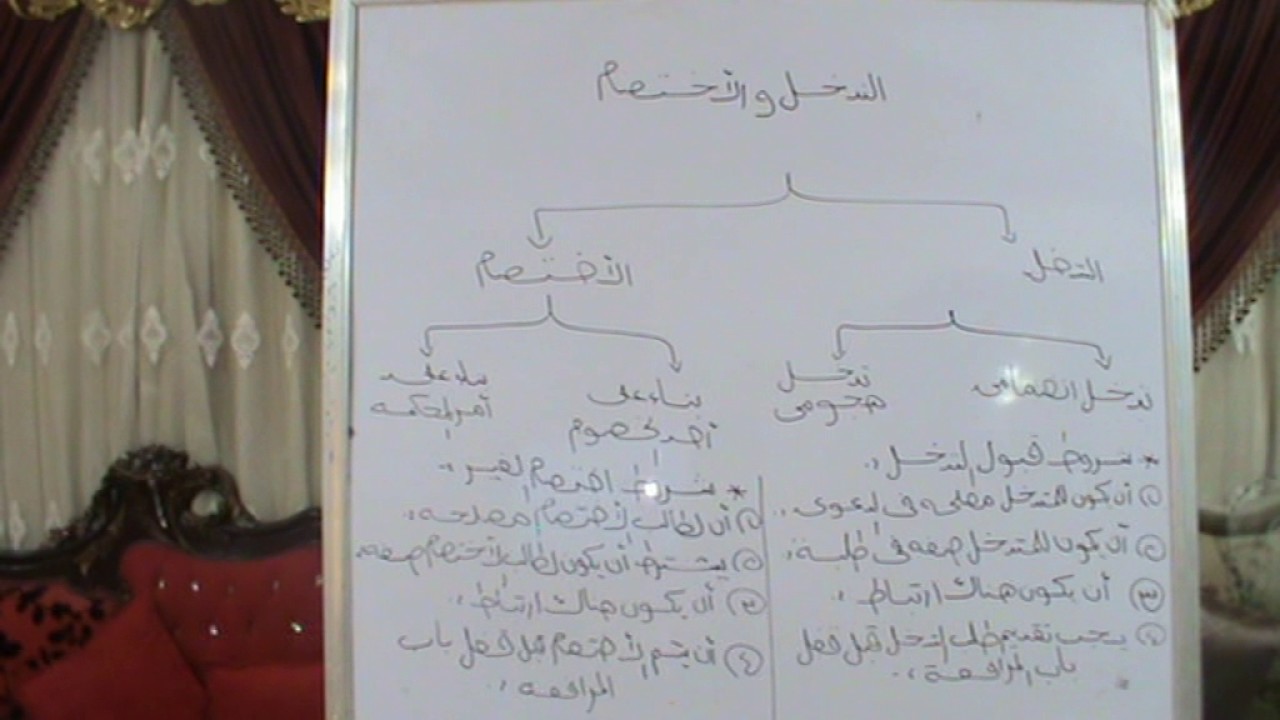 التدخل والأختصام
التدخل
الأختصام
تدخل انضمامى
تدخل
هجومى
بناء على
أحد الخصوم
بناء على
أمر المحكمه
* شروط قبول التدخل :.
① أن يكون للمتدخل مصلحه فى الدعوى :.
② أن يكون للمتدخل صفه فى طلبة :
③ أن يكون هناك ارتباط :
④ يجب تقديم طلب التدخل قبل قفل
باب المرافعة :.
* شروط اختصام الغير :.
① أن لطالب الأختصام مصلحه :
② يشترط أن يكون لطالب الأختصام صفه :
③ أن يكون هناك ارتباط :
④ أن يتم الأختصام قبل قفل باب
المرافعه :